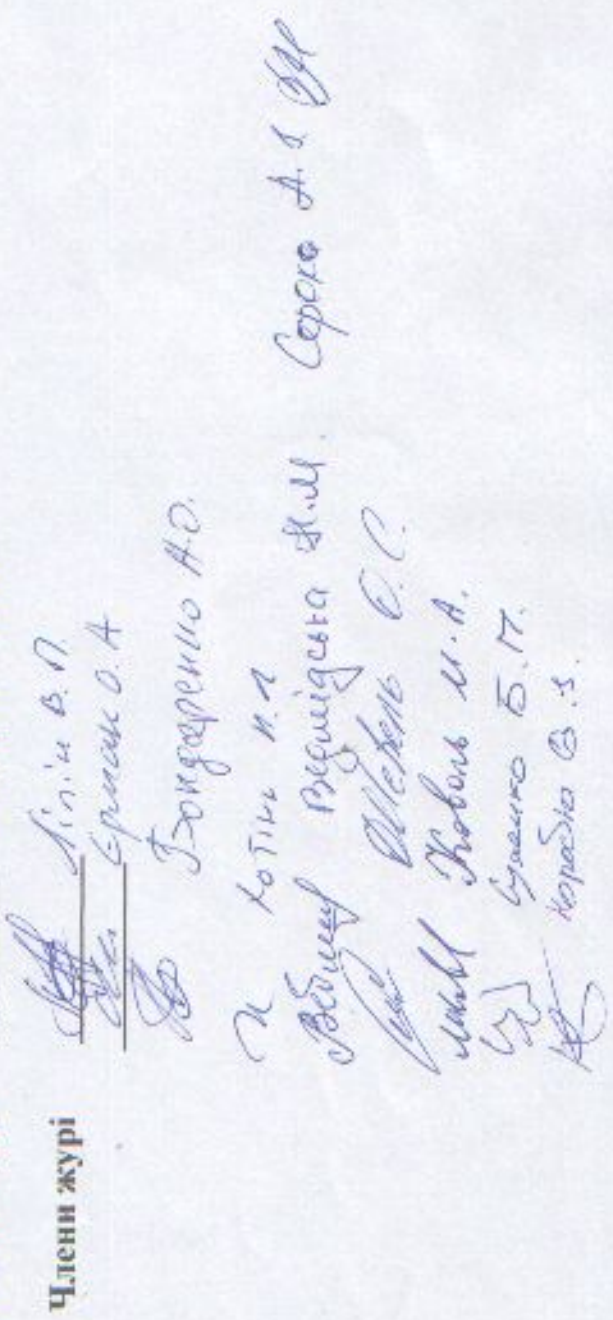 Члени журі
Ліпін В. П.
Єрмак О. А
Бондаренко А.О.
Котін И. Л
Ведмідська Н.М. Сорока А. І
Шевень О. С.
Коваль М. А.
Б. М.
Корабльо В. З.